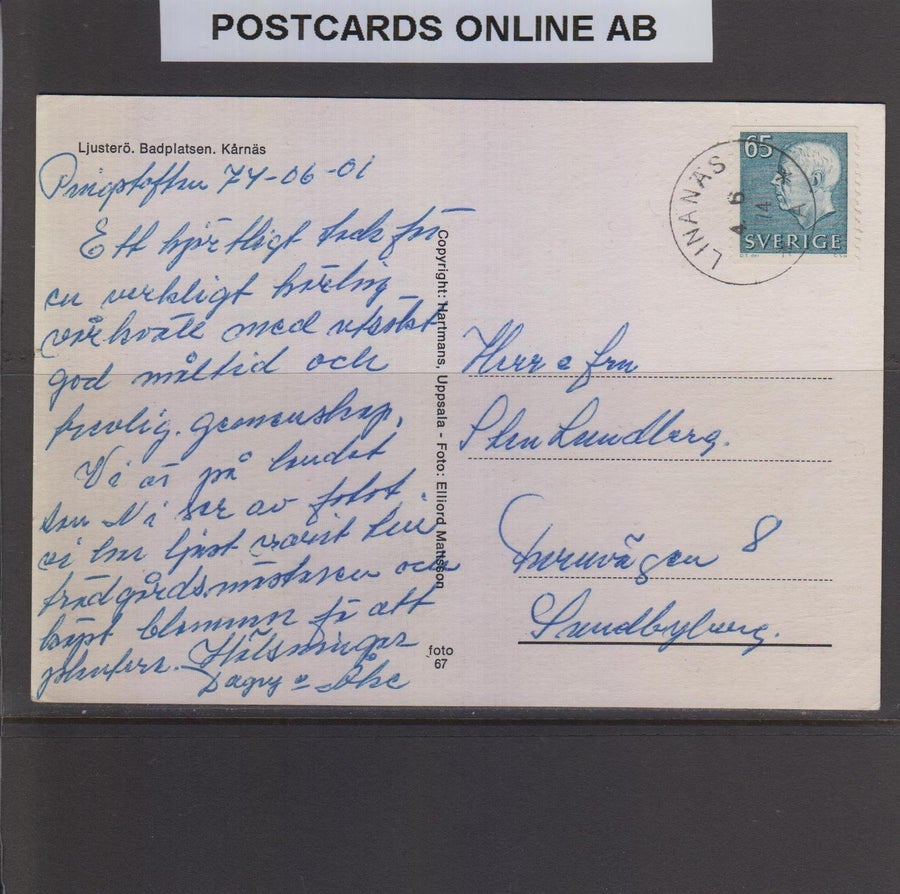 POSTCARDS ONLINE AB
Ljusterö. Badplatsen. Kårnäs
Pingstafton 74-06-01
Ett hjärtligt tack för
en verkligt härlig
vårkväll med utsökt
god måltid och
trevlig gemenskap.
Vi är på landet
som Ni ser av fotot.
vi har just varit hos
trädgårdsmästaren och
köpt blommor för att
plantera. Hälsningar
Dagny o Åke
Copyright: Hartmans, Uppsala - Foto: Elliord Mattsson
foto
67
65
SVERIGE
LINANÄS
4 6
74
Herr o fru
Sten Lundberg.
Furuvägen 8
Sundbyberg.